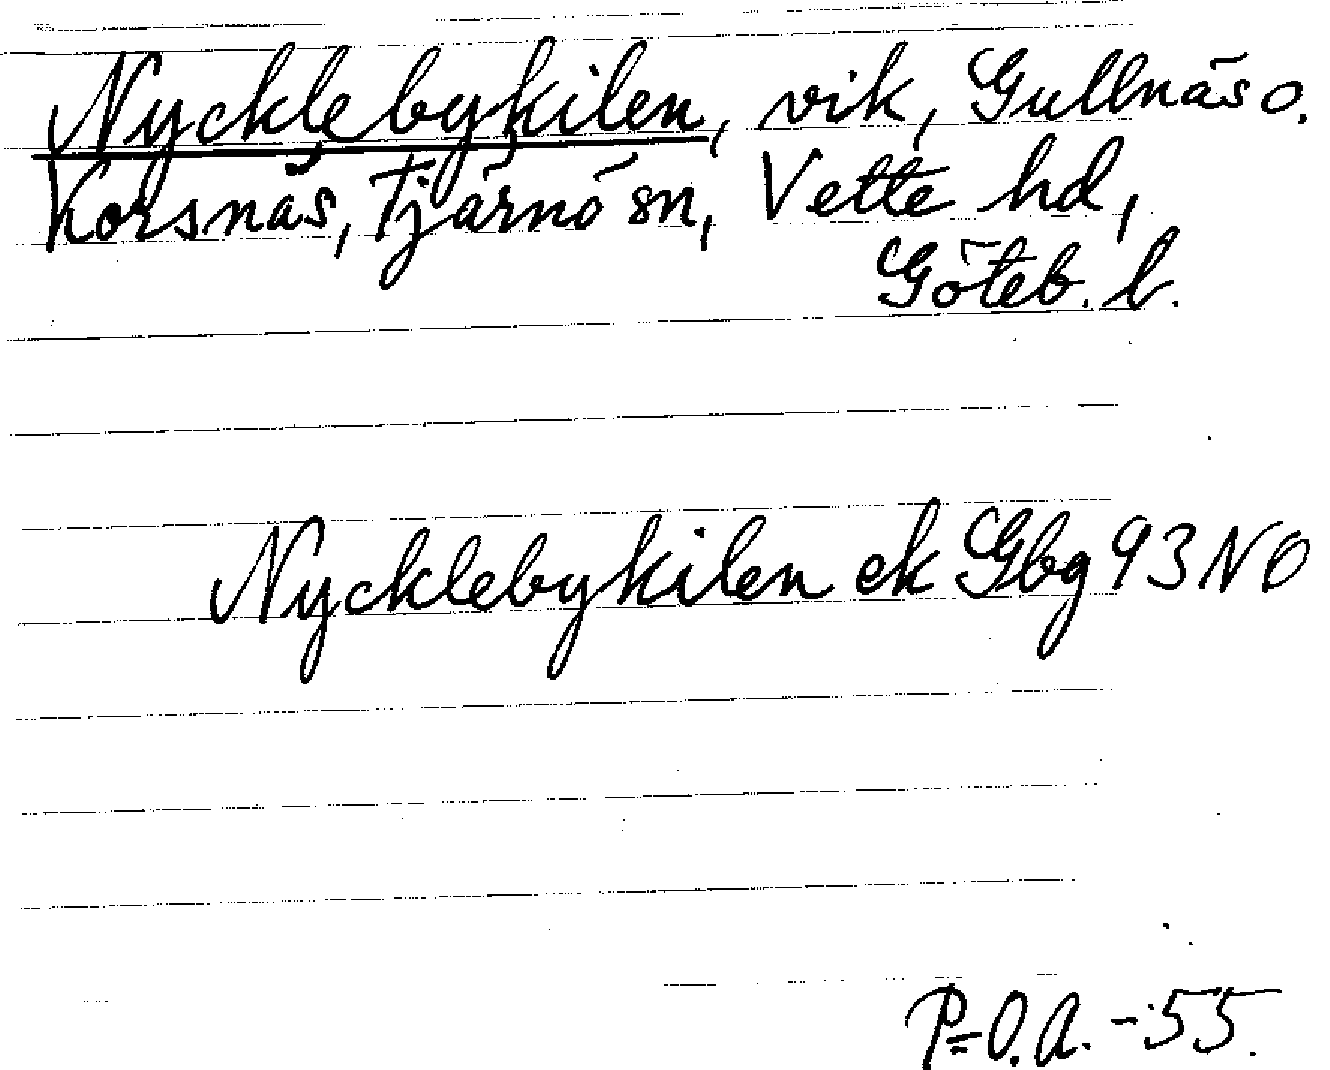 Nycklebykilen, vik, Gullnäs o.
Korsnäs, Tjärnö sn, Vette hd,
Göteb. l.
Nycklebykilen ek Gbg 93 NO
P-O.A. -55.